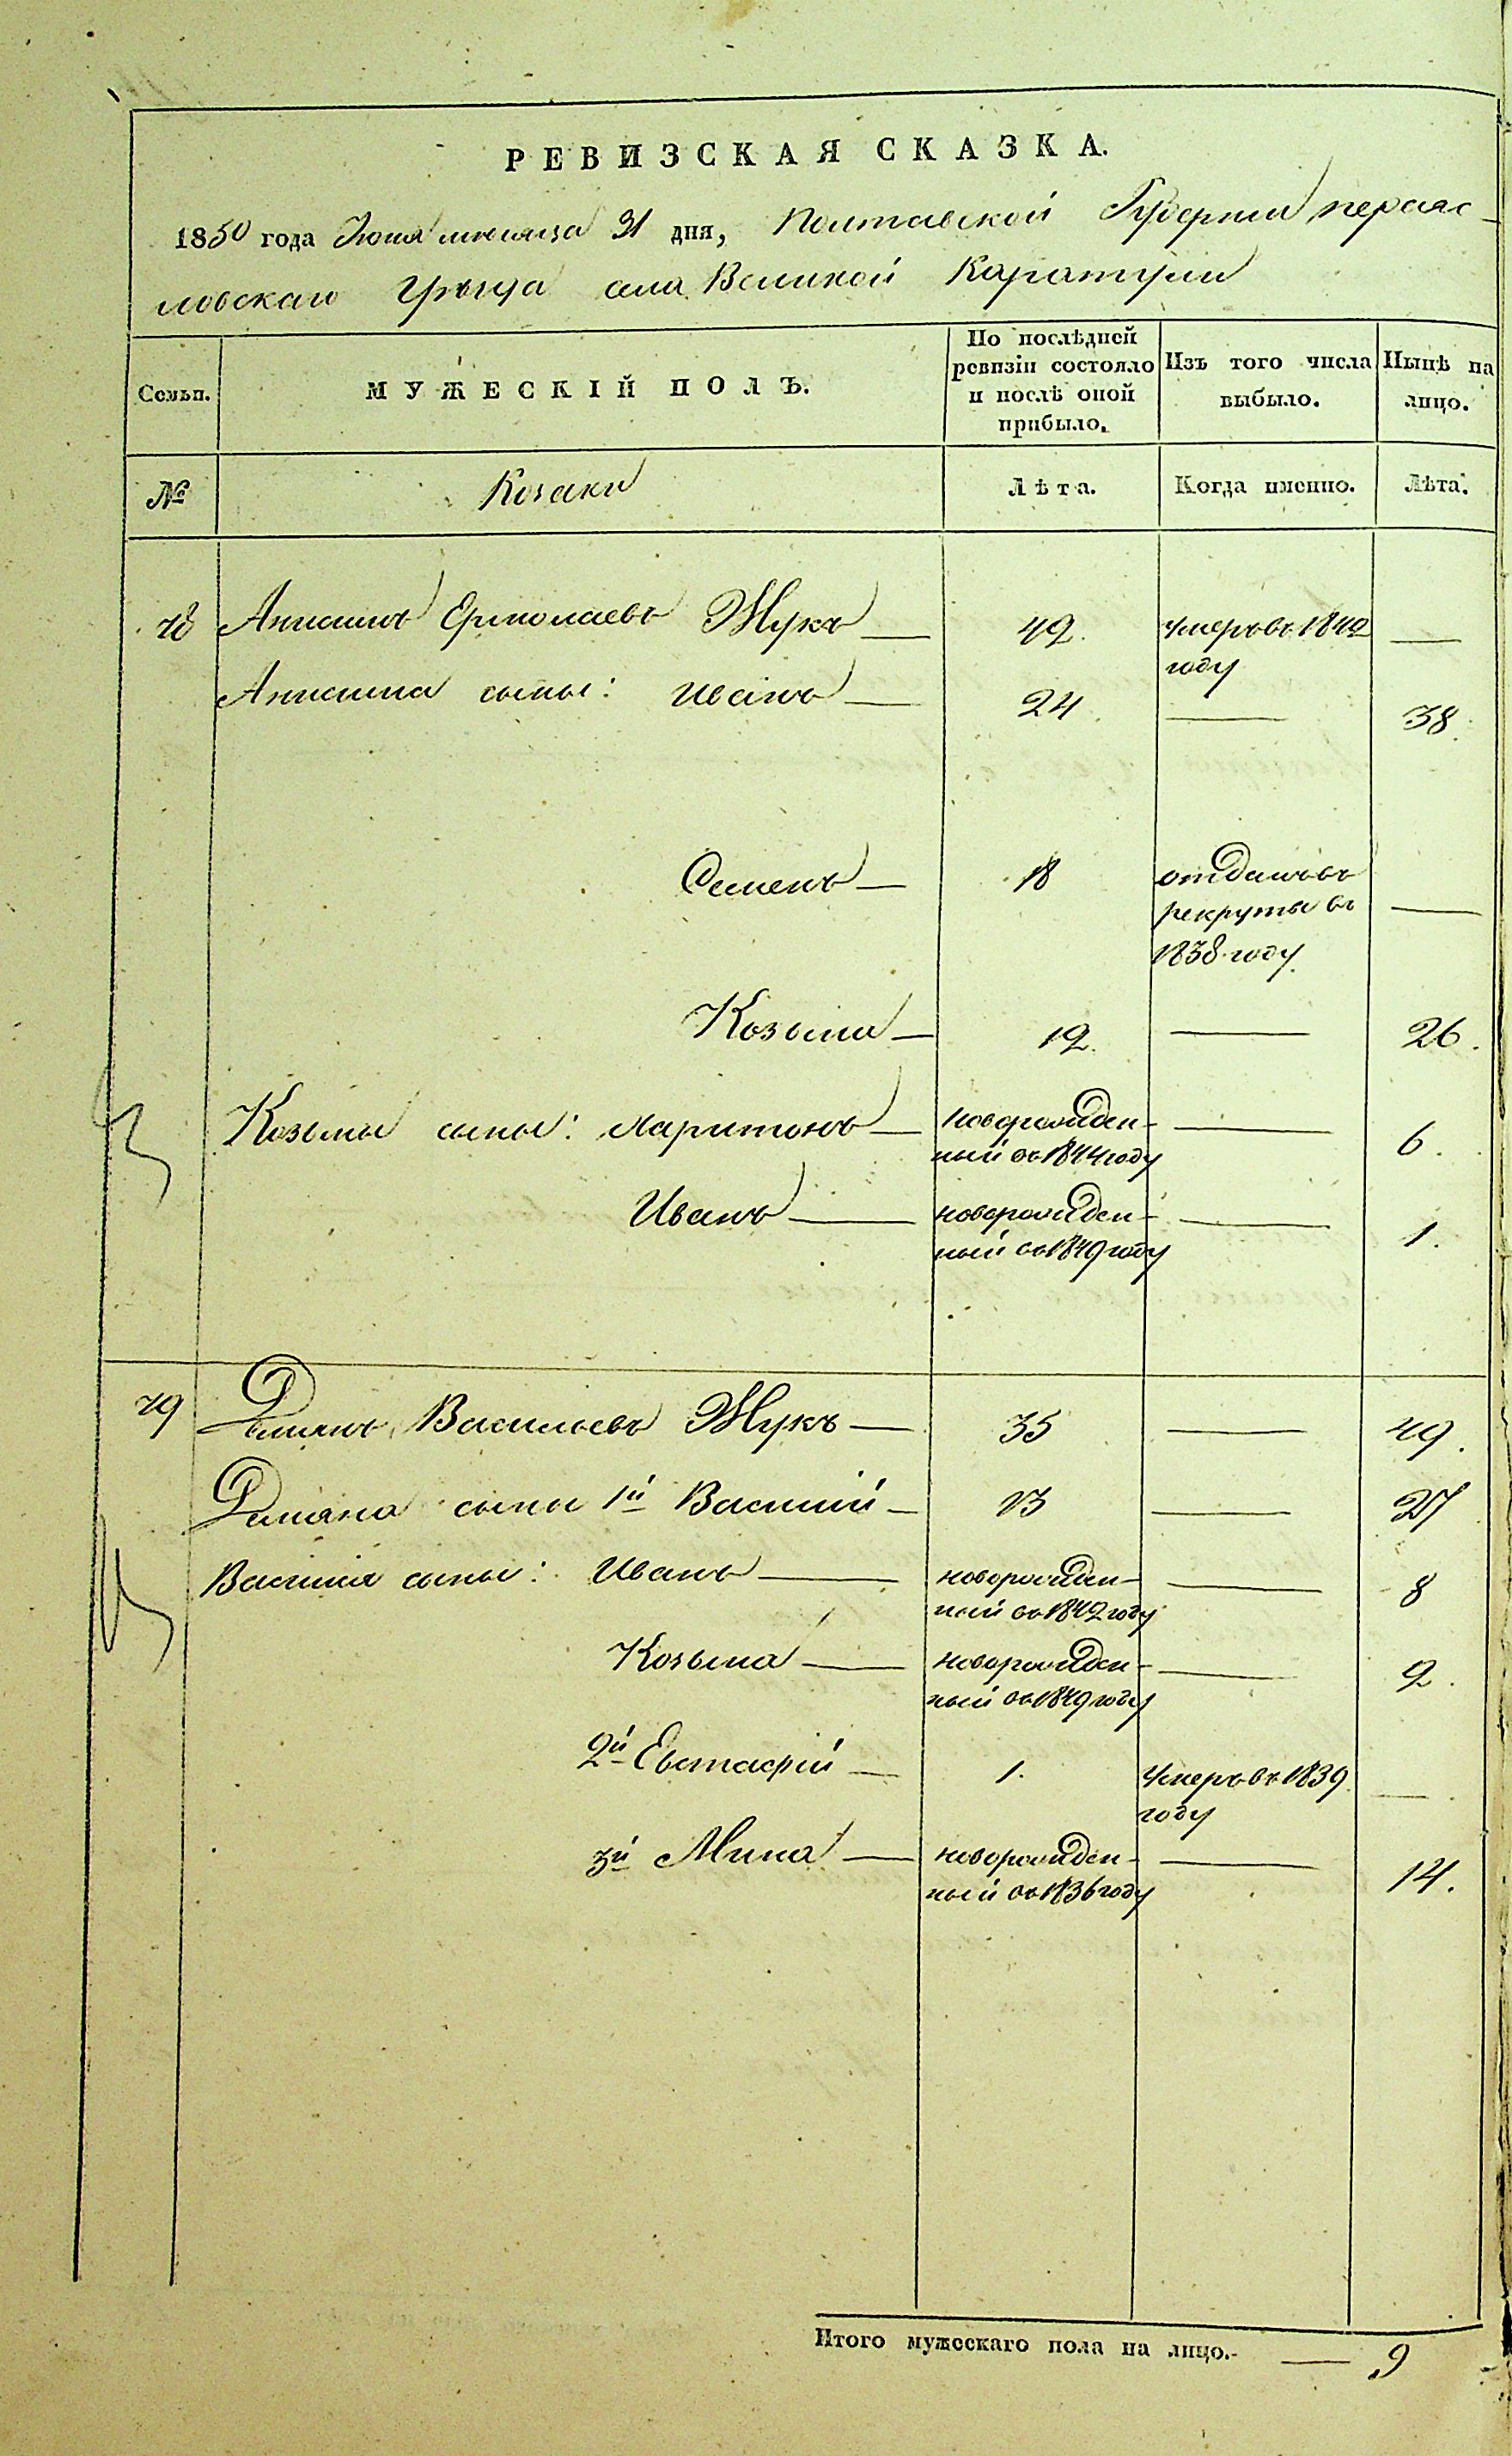 РЕВИЗСКАЯ СКАЗКА.
1850 года Июня мѣсяца 31 дня, Полтавской Губерніи переяс-
ловскаго Уѣзда села Великой Каратули
Семьи.
МУЖЕСКІЙ ПОЛЪ.
По послѣдней ревизіи состояло и послѣ оной прибыло.
Изъ того числа выбыло.
Нынѣ на лицо.
№ Козаки Лѣта. Когда именно. Лѣта.
78 Анисимъ Ермолаевъ Жукъ — 49. умеръ въ 1842 —
году
Анисима сыны: Иванъ — 24 — 38.
Семенъ — 18 отданъ въ
рекруты въ —
1838 году
Козьма — 12. — 26.
Козьмы сыны: Харитонъ — новорожден- — 6.
ный въ 1844 году
Иванъ — новорожден- — 1.
ный въ 1849 году
79 Демьянъ Васильевъ Жукъ — 35 — 49.
Демьяна сыны 1й Василій — 13 — 27
Василія сыны: Иванъ — новорожден- — 8
ный въ 1842 году
Козьма — новорожден- — 2.
ный въ 1849 году
2й Евстафій — 1. Умеръ въ 1839 —
году
3й Мина — новорожден- — 14.
ный въ 1836 году
Итого мужескаго пола на лицо. — 9